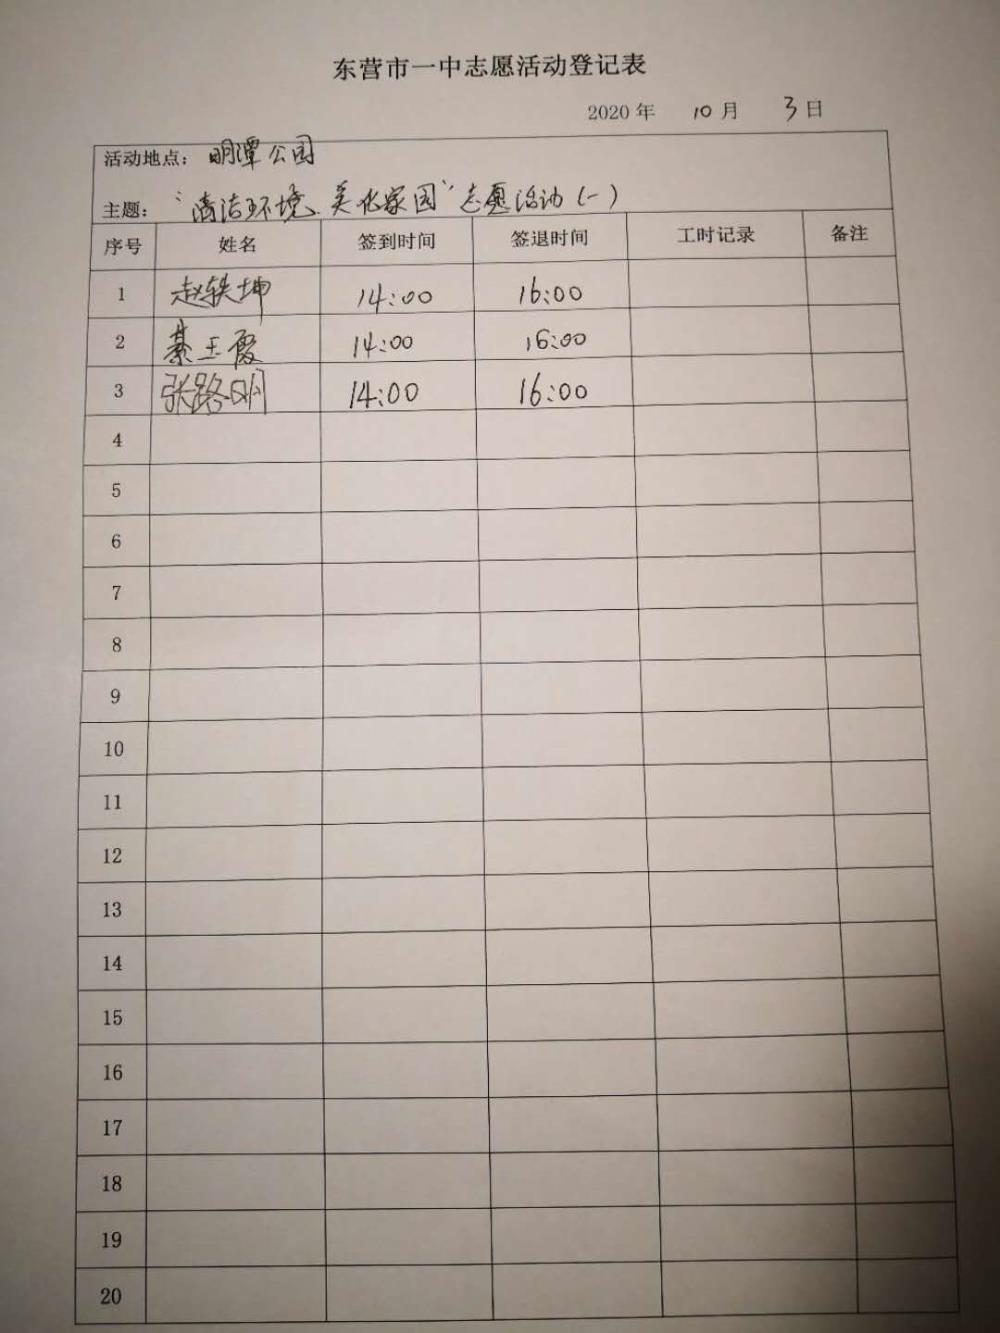 东营市一中志愿活动登记表
2020 年 10 月 3 日
活动地点: 明潭公园
主题: “清洁环境.美化家园”志愿活动(一)
序号 姓名 签到时间 签退时间 工时记录 备注
1 赵轶坤 14:00 16:00
2 綦玉霞 14:00 16:00
3 张路明 14:00 16:00
4
5
6
7
8
9
10
11
12
13
14
15
16
17
18
19
20